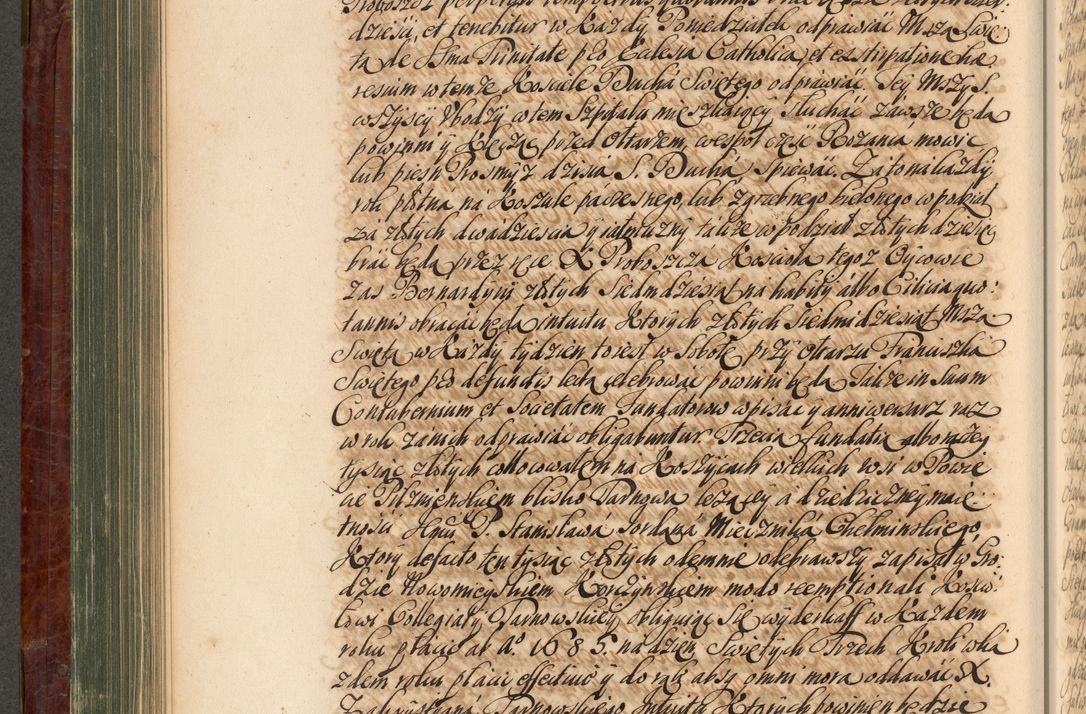 dzieści, et tenebitur w Każdy Poniedziałek odprawiać Msza Świę:
ta de SSma Trinitate pro Eclesia Catholica, et extirpatione hæ
resium w temże Kościele Ducha Swiętego odprawiać. Tey Mszy S.
wszyscy Ubodzy w tem Szpitalu mieszkaiący słuchać zawsze będą
powinni y klęcząc przed Ołtarzem, wespoł część Rożańca mowić
lub piesn Prosmyż dzisia S. Ducha, spiewać. Za to na każdy
rok płotna na Koszule paczesnego, lub zgrzebnego bielonego w podział
za złotych dwadziescia y iałmużny także w podział złotych dziesięć
brać będą przez ręce X Proboszcza Kościoła tegoż Oycowie
zas Bernardyni złotych Siedmdziesiąt na habity albo Cilicia quo:
tannis obracać będą intuitu Ktorych złotych Siedmidziesiąt Msza
Święta w Każdy tydzien to iest w Sobotę przy Ołtarzu Franciszka
Swiętego pro defunctis celebrować powinni będą Także in Suum
Contubernium et Societatem Fundatorow wpisać y anniwersarz raz
w rok za nich odprawiać obligabuntur. Trzecia fundatia albo
tysiąc złotych collocowałem na Koszycach wielkich wsi w Powie
cie Pilznienskiem blisko Tarnowa leżącey a dziedziczney maię:
tnosci Jmci P. Stanisława Jordana Miecznika Chełminskiego,
Ktory de facto ten tysiąc złotych odemnie odebrawszy zapisał w Gro:
dzie Nowomieyskiem Korczynskiem modo reemptionali Kościo:
łowi Collegiaty Tarnowskiey, obliguiąc się wyderkaff w Każdem
roku płacić ab Aº. 1685. na dzien Swiętych Trzech Kroli w ka
zdem roku płacić effective y do rąk absq omni mora oddawać X.
Tarnowskiego Intuitu Ktorych powinien będzie